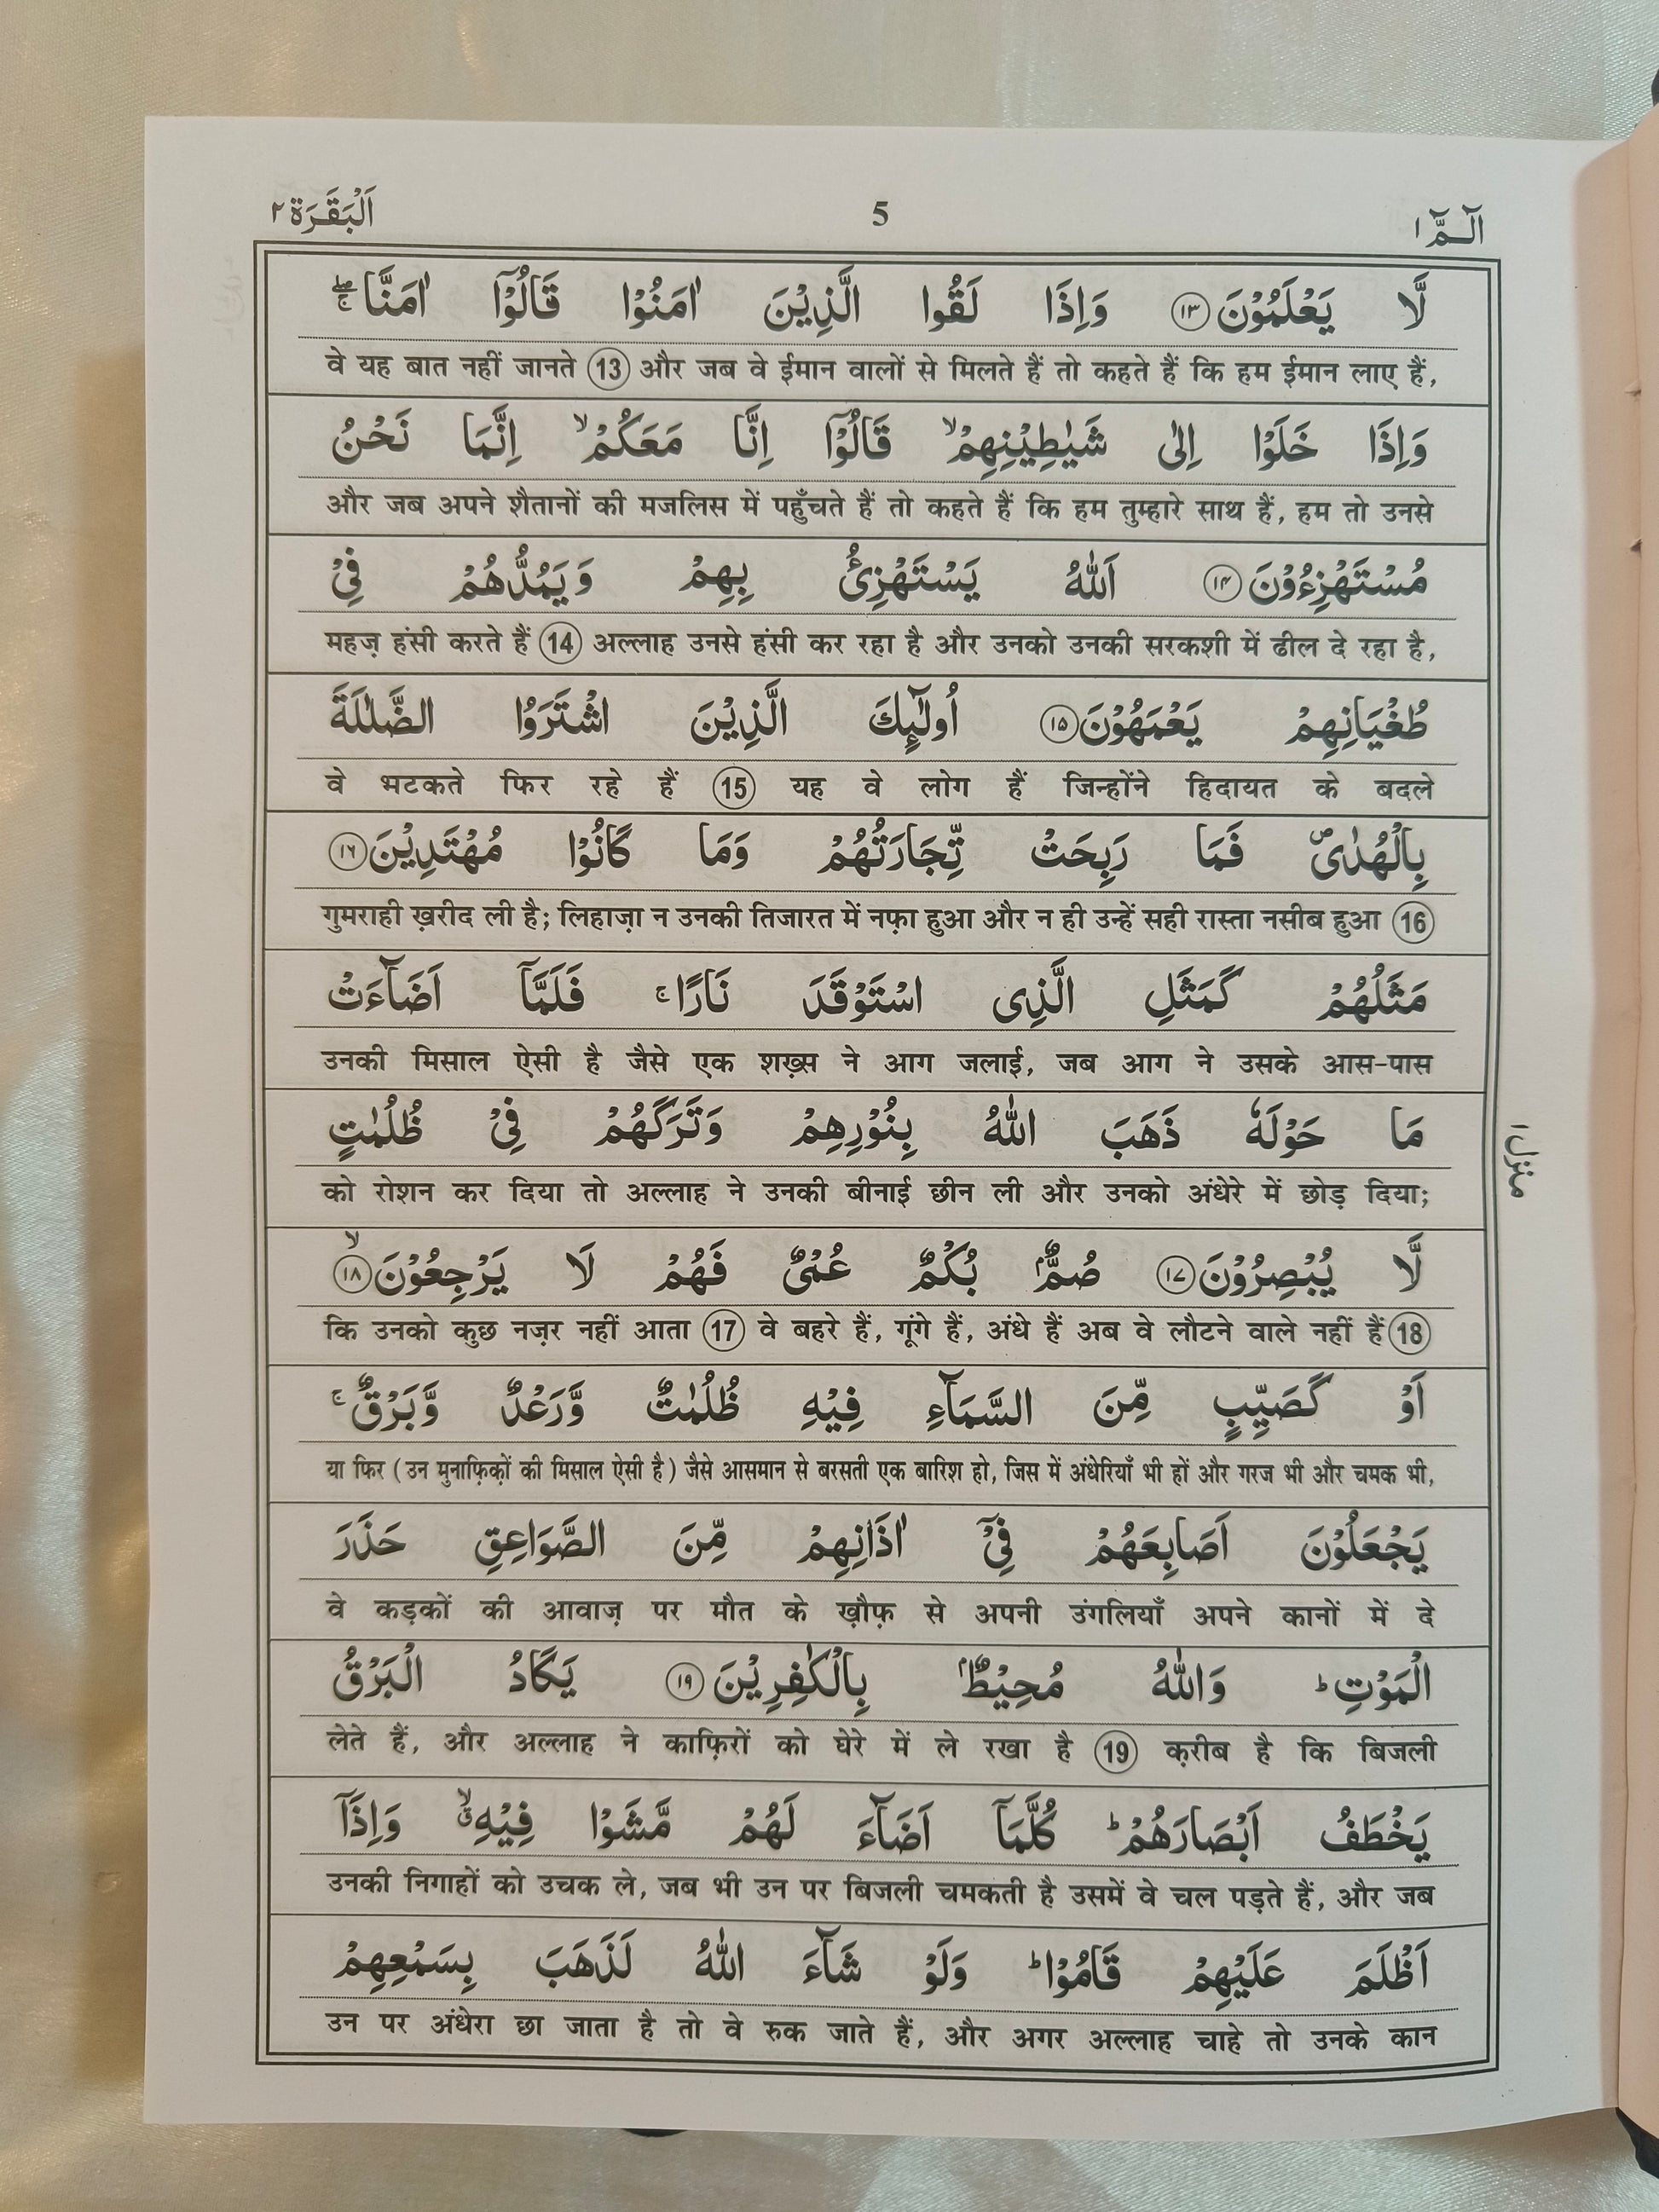 اَلْبَقَرَة ٢
5
الٓمّٓ ١
لَّا يَعْلَمُوْنَ ﴿١٣﴾ وَاِذَا لَقُوا الَّذِيْنَ اٰمَنُوْا قَالُوْٓا اٰمَنَّا ۖۚ
वे यह बात नहीं जानते (13) और जब वे ईमान वालों से मिलते हैं तो कहते हैं कि हम ईमान लाए हैं,
وَاِذَا خَلَوْا اِلٰى شَيٰطِيْنِهِمْ ۙ قَالُوْٓا اِنَّا مَعَكُمْ ۙ اِنَّمَا نَحْنُ
और जब अपने शैतानों की मजलिस में पहुँचते हैं तो कहते हैं कि हम तुम्हारे साथ हैं, हम तो उनसे
مُسْتَهْزِءُوْنَ ﴿١٤﴾ اَللّٰهُ يَسْتَهْزِئُ بِهِمْ وَيَمُدُّهُمْ فِيْ
महज़ हंसी करते हैं (14) अल्लाह उनसे हंसी कर रहा है और उनको उनकी सरकशी में ढील दे रहा है,
طُغْيَانِهِمْ يَعْمَهُوْنَ ﴿١٥﴾ اُولٰٓئِكَ الَّذِيْنَ اشْتَرَوُا الضَّلٰلَةَ
वे भटकते फिर रहे हैं (15) यह वे लोग हैं जिन्होंने हिदायत के बदले
بِالْهُدٰى ۪ فَمَا رَبِحَتْ تِّجَارَتُهُمْ وَمَا كَانُوْا مُهْتَدِيْنَ ﴿١٦﴾
गुमराही ख़रीद ली है; लिहाज़ा न उनकी तिजारत में नफ़ा हुआ और न ही उन्हें सही रास्ता नसीब हुआ (16)
مَثَلُهُمْ كَمَثَلِ الَّذِى اسْتَوْقَدَ نَارًا ۚ فَلَمَّآ اَضَآءَتْ
उनकी मिसाल ऐसी है जैसे एक शख़्स ने आग जलाई, जब आग ने उसके आस-पास
مَا حَوْلَهٗ ذَهَبَ اللّٰهُ بِنُوْرِهِمْ وَتَرَكَهُمْ فِيْ ظُلُمٰتٍ
को रोशन कर दिया तो अल्लाह ने उनकी बीनाई छीन ली और उनको अंधेरे में छोड़ दिया;
منزل ١
لَّا يُبْصِرُوْنَ ﴿١٧﴾ صُمٌّۢ بُكْمٌ عُمْيٌ فَهُمْ لَا يَرْجِعُوْنَ ۙ﴿١٨﴾
कि उनको कुछ नज़र नहीं आता (17) वे बहरे हैं, गूंगे हैं, अंधे हैं अब वे लौटने वाले नहीं हैं (18)
اَوْ كَصَيِّبٍ مِّنَ السَّمَآءِ فِيْهِ ظُلُمٰتٌ وَّرَعْدٌ وَّبَرْقٌ ۚ
या फिर (उन मुनाफ़िक़ों की मिसाल ऐसी है) जैसे आसमान से बरसती एक बारिश हो, जिस में अंधेरियाँ भी हों और गरज भी और चमक भी,
يَجْعَلُوْنَ اَصَابِعَهُمْ فِيْٓ اٰذَانِهِمْ مِّنَ الصَّوَاعِقِ حَذَرَ
वे कड़कों की आवाज़ पर मौत के ख़ौफ़ से अपनी उंगलियाँ अपने कानों में दे
الْمَوْتِ ؕ وَاللّٰهُ مُحِيْطٌۢ بِالْكٰفِرِيْنَ ﴿١٩﴾ يَكَادُ الْبَرْقُ
लेते हैं, और अल्लाह ने काफ़िरों को घेरे में ले रखा है (19) क़रीब है कि बिजली
يَخْطَفُ اَبْصَارَهُمْ ؕ كُلَّمَآ اَضَآءَ لَهُمْ مَّشَوْا فِيْهِ ۙۗ وَاِذَآ
उनकी निगाहों को उचक ले, जब भी उन पर बिजली चमकती है उसमें वे चल पड़ते हैं, और जब
اَظْلَمَ عَلَيْهِمْ قَامُوْا ؕ وَلَوْ شَآءَ اللّٰهُ لَذَهَبَ بِسَمْعِهِمْ
उन पर अंधेरा छा जाता है तो वे रुक जाते हैं, और अगर अल्लाह चाहे तो उनके कान